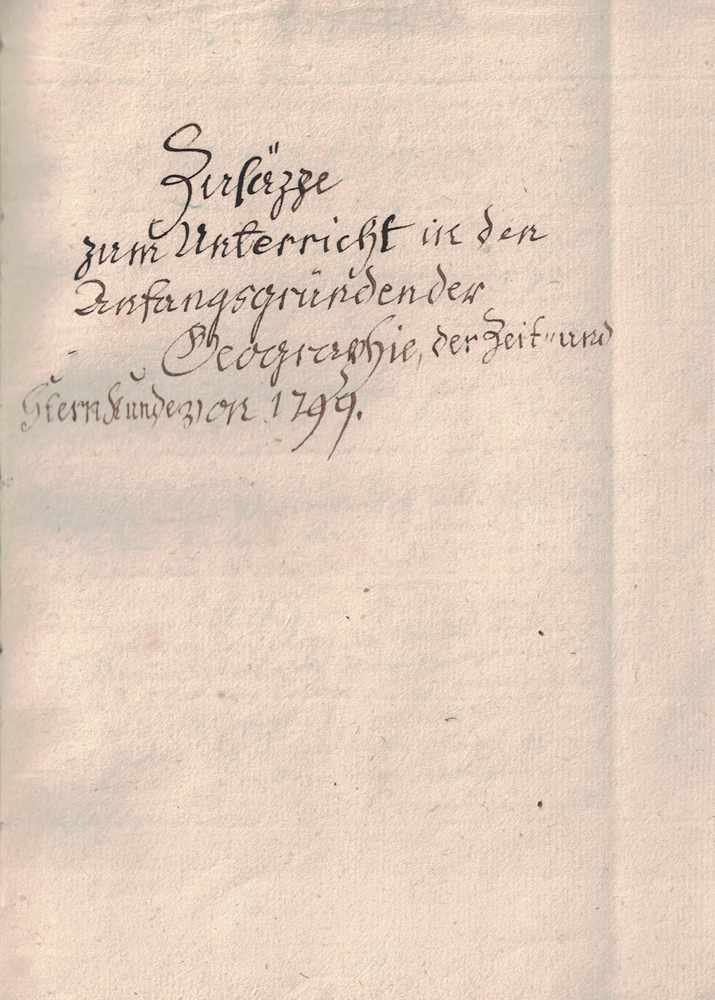 Zusäzze
zum Unterricht in den
Anfangsgründen der
Geographie, der Zeit- und
Sternkunde von 1799.